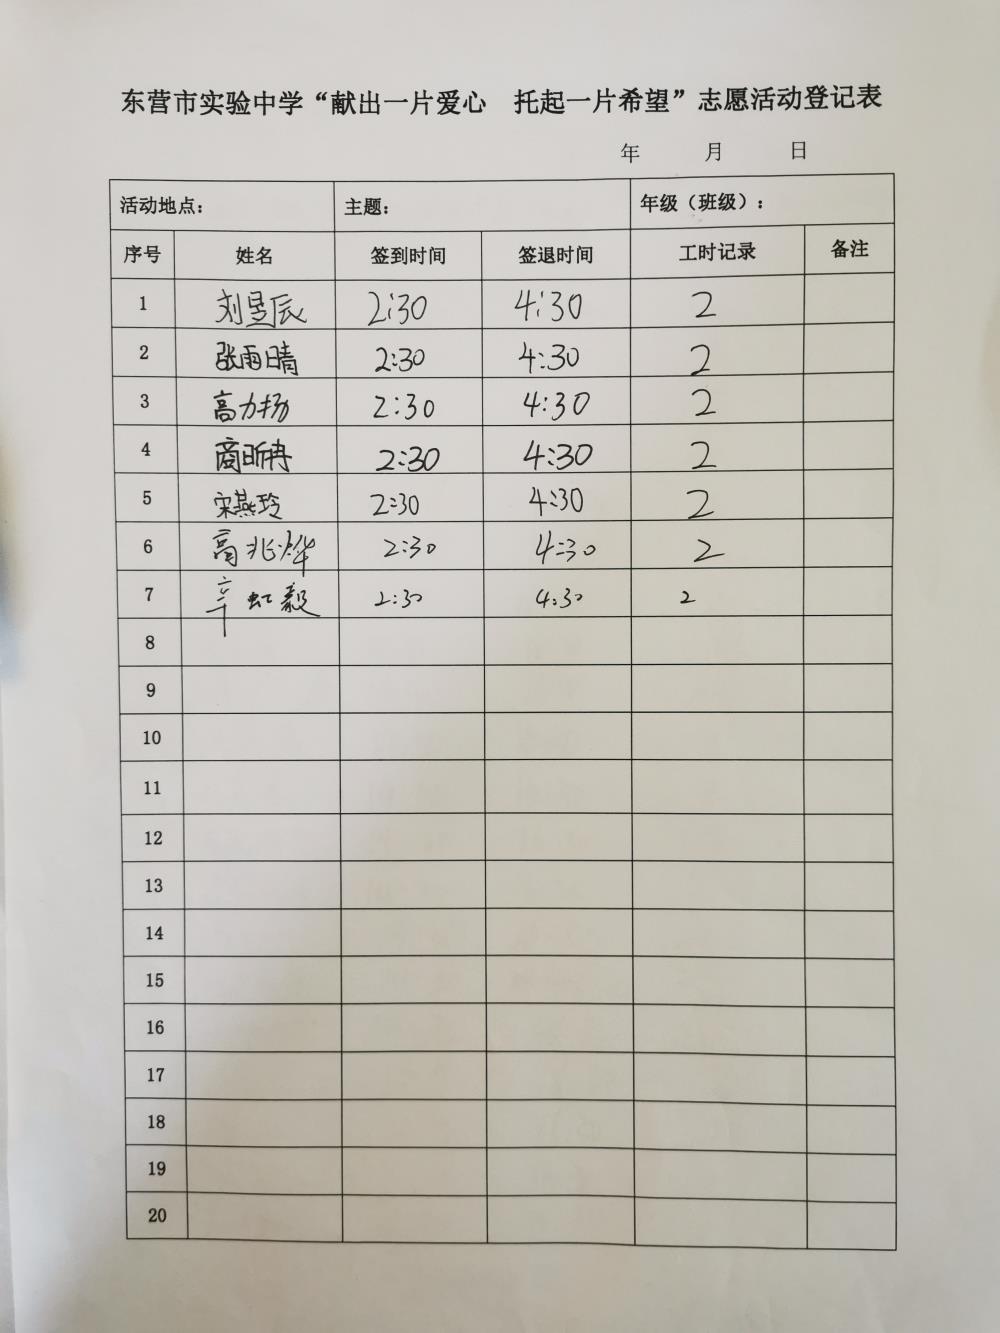 东营市实验中学“献出一片爱心 托起一片希望”志愿活动登记表
年 月 日
活动地点： 主题： 年级（班级）：
序号 姓名 签到时间 签退时间 工时记录 备注
1 刘昱辰 2:30 4:30 2
2 张雨晴 2:30 4:30 2
3 高力扬 2:30 4:30 2
4 商昕冉 2:30 4:30 2
5 宋燕玲 2:30 4:30 2
6 高兆烨 2:30 4:30 2
7 辛虹毅 2:30 4:30 2
8
9
10
11
12
13
14
15
16
17
18
19
20